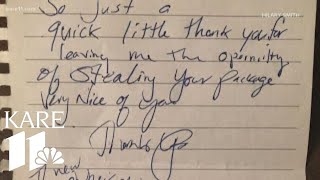 So Just a
quick little thank you for
leaving me the oppinuilty
of Stealing Your package
Very Nice of you
Thanks
new
KARE
11
HILLARY SMITH